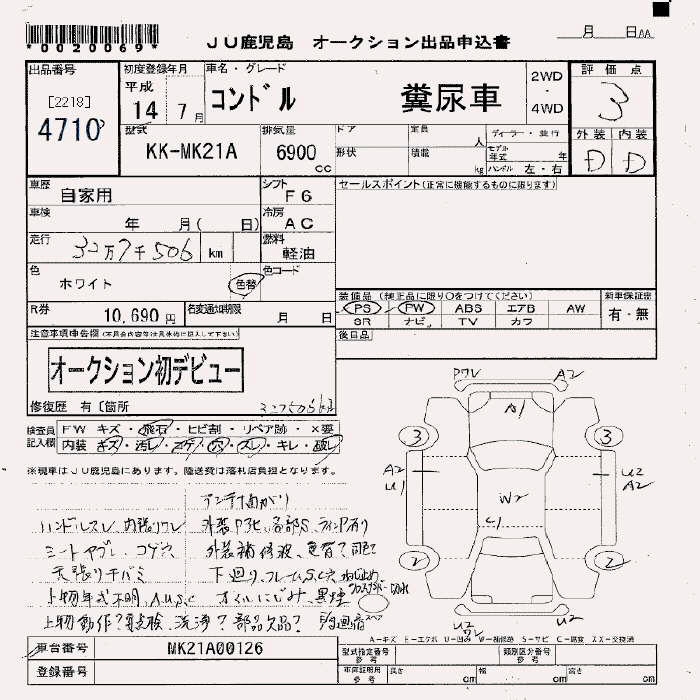 *0020069*
JU鹿児島 オークション出品申込書
月 日 AA
出品番号
[2218]
4710
初度登録年月
平成
14年 7月
車名・グレード
コンドル 糞尿車
2WD
・
4WD
評価点
3
型式
KK-MK21A
排気量
6900 cc
ドア
形状
定員 人
積載 kg
ディーラー・並行
モデル年式 年
ハンドル 左・右
外装 内装
D D
車歴
自家用
シフト
F6
セールスポイント(正常に機能するものに限ります)
車検
年 月( 日)
冷房
AC
走行
32万7千506 km
燃料
軽油
色
ホワイト
色替
色コード
R券
10,690円
名変通知期限
月 日
装備品(純正品に限り○をつけてください)
PS PW ABS エアB AW
SR ナビ TV カワ
新車保証書
有・無
後日品
注意事項申告欄
オークション初デビュー
修復歴 有〔箇所
327506km
検査員記入欄
FW キズ・飛石・ヒビ割・リペア跡・×要
内装 キズ・汚レ・コゲ・穴・スレ・キレ・破レ
※現車はJU鹿児島にあります。陸送費は落札店負担となります。
アンテナ曲がり
ハンドルスレ、内張りワレ
外装サビ、各部S、
シートヤブレ コゲ穴
天張りチバミ
下廻り、フレームS,C穴
上物年式不明 A,U,S,C
オイルにじみ、黒煙
ワレ A2
A1
3 3
A2 U1
U2 A2
W2
C1
2 2
U2 ワレ U2
スペア
A-キズ E-エクボ U-凹み W-補修跡 S-サビ C-腐食 XX-交換済
車台番号
MK21A00126
登録番号
型式指定番号
参考
類別区分番号
参考
車庫証明用
参考
長さ cm 幅 cm 高さ cm